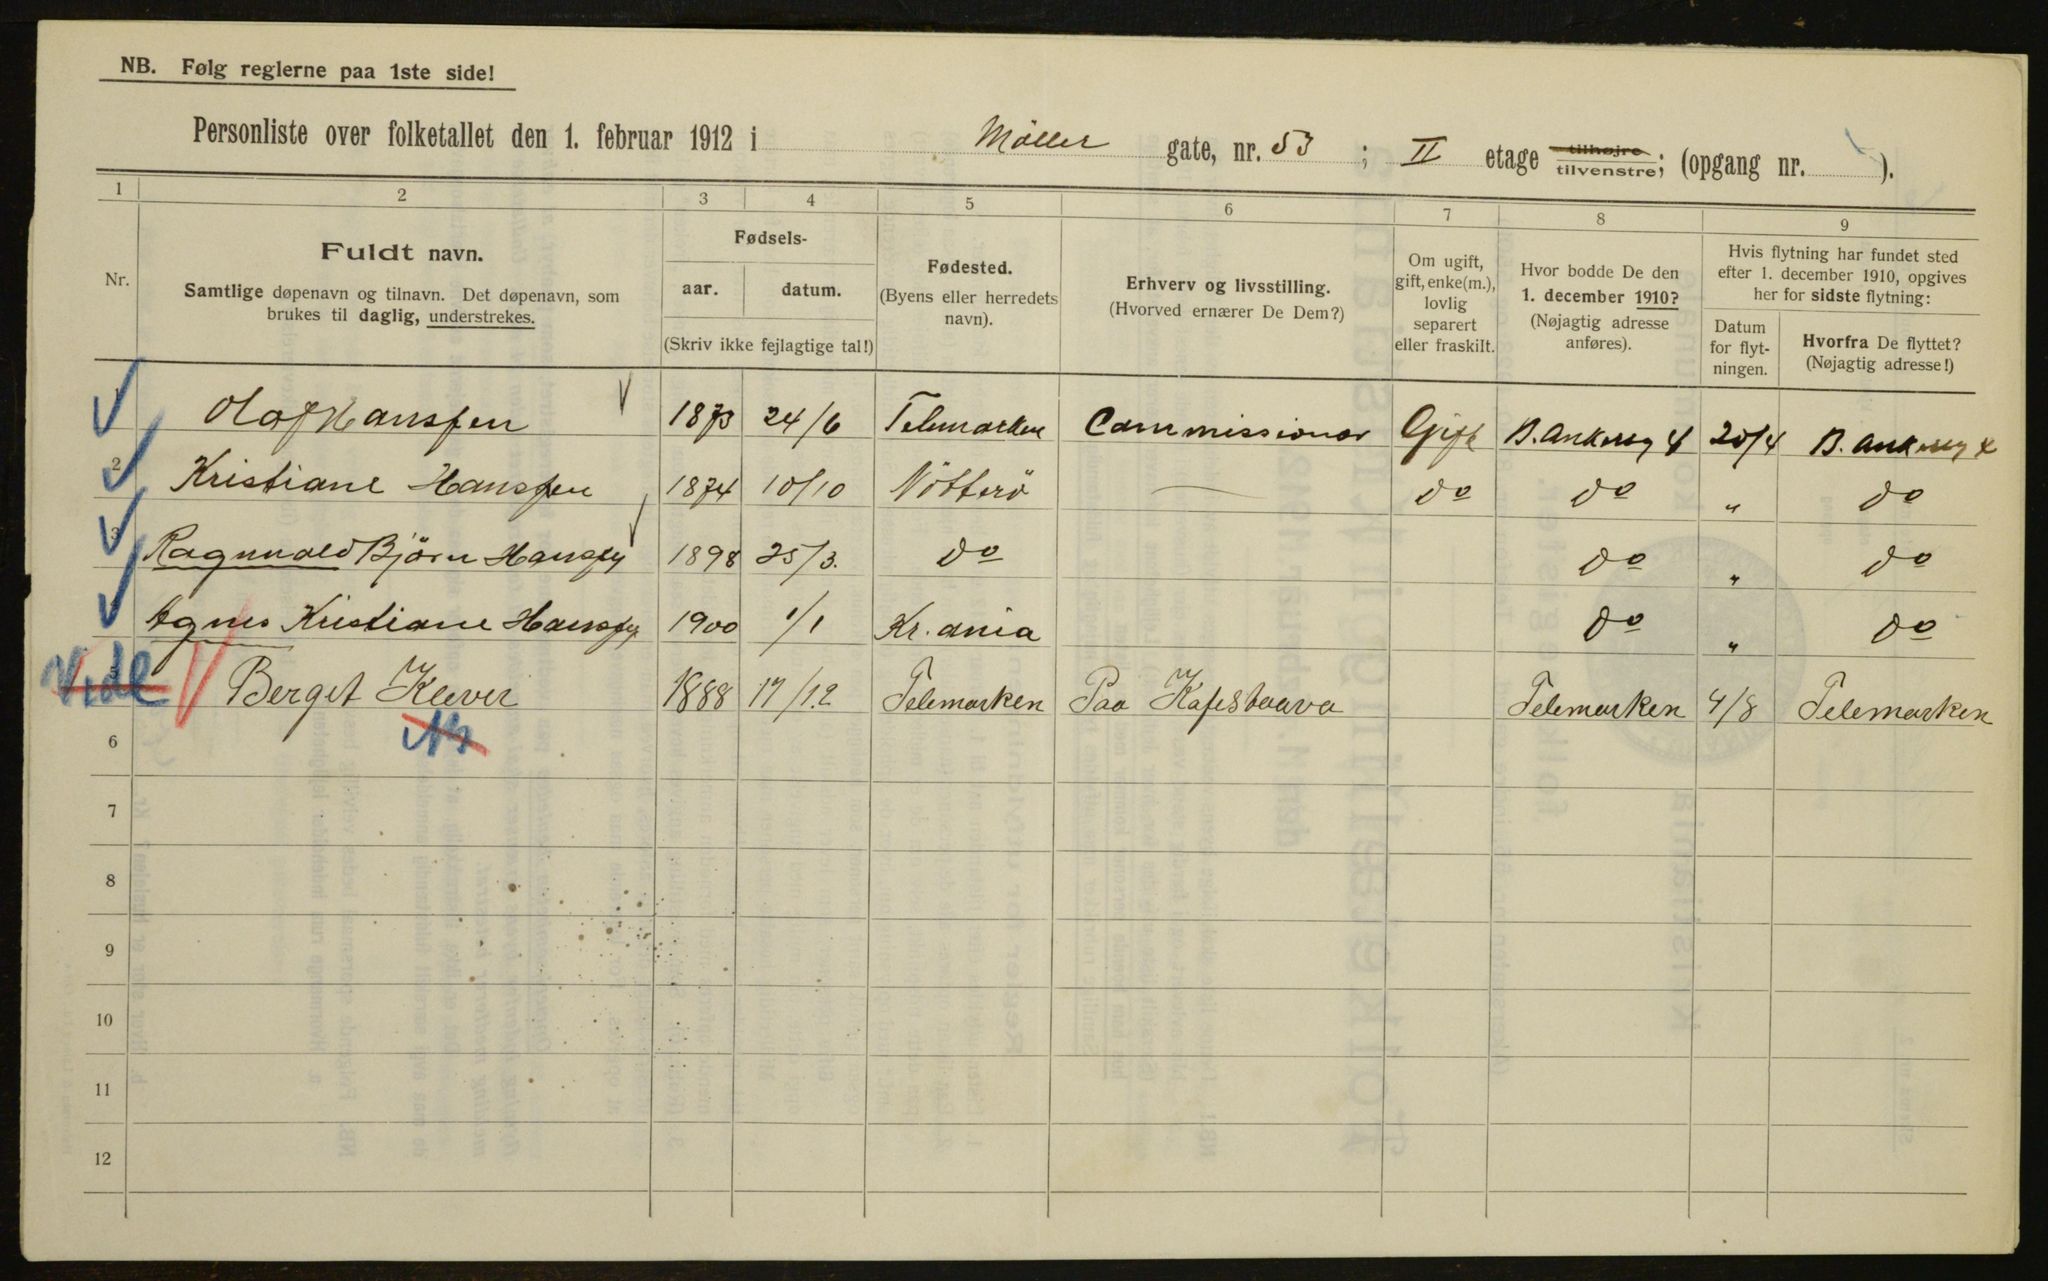 NB. Følg reglerne paa 1ste side!
Personliste over folketallet den 1. februar 1912 i Møller gate, nr. 53 ; II etage tilhøjre tilvenstre; (opgang nr. ).
1 2 3 4 5 6 7 8 9
Nr.
Fuldt navn.
Samtlige døpenavn og tilnavn. Det døpenavn, som
brukes til daglig, understrekes.
Fødsels-
aar. datum.
(Skriv ikke fejlagtige tal!)
Fødested.
(Byens eller herredets
navn).
Erhverv og livsstilling.
(Hvorved ernærer De Dem?)
Om ugift,
gift, enke(m.),
lovlig
separert
eller fraskilt.
Hvor bodde De den
1. december 1910?
(Nøjagtig adresse
anføres).
Hvis flytning har fundet sted
efter 1. december 1910, opgives
her for sidste flytning:
Datum
for flyt-
ningen.
Hvorfra De flyttet?
(Nøjagtig adresse!)
1 Olaf Hanssen 1873 24/6 Telemarken Commissionær Gift B. Ankersg 4 20/4 B. Ankersg 4
2 Kristiane Hanssen 1874 10/10 Nötterö — do do " do
3 Ragnvald Björn Hanssen 1898 25/3. do do " do
Agnes Kristiane Hanssen 1900 1/1 Kr.ania do " do
Vide 5 Berget Klever 1888 17/12 Telemarken Paa Kafestaava Telemarken 4/8 Telemarken
6
7
8
9
10
11
12